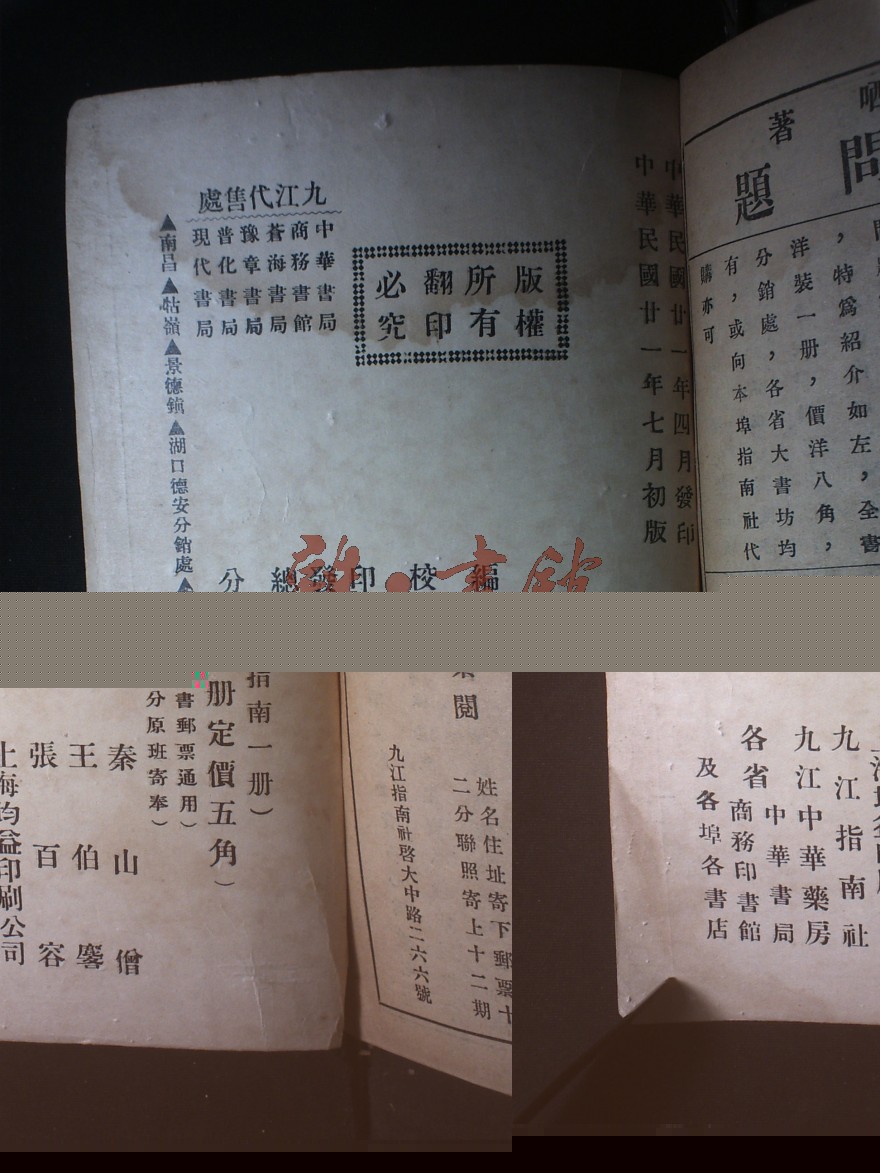 中華民國廿一年四月發印
中華民國廿一年七月初版
版權
所有
翻印
必究
九江代售處
中華書局
商務書館
蒼海書局
豫章書局
普化書局
現代書局
▲南昌▲牯嶺▲景德鎮▲湖口德安分銷處▲
編
校
印
發
總
分
著
問題
，特爲紹介如左，全書
洋裝一册，價洋八角，
分銷處，各省大書坊均
有，或向本埠指南社代
購亦可
閱
姓名住址寄下郵票十
二分聯照寄上十二期
九江指南社啓大中路二六六號
指南一册）
册定價五角）
書郵票通用）
分原班寄奉）
秦山僧
王伯
張百容
上海均益印刷公司
九江指南社
九江中華藥房
中華書局
各省商務印書館
及各埠各書店